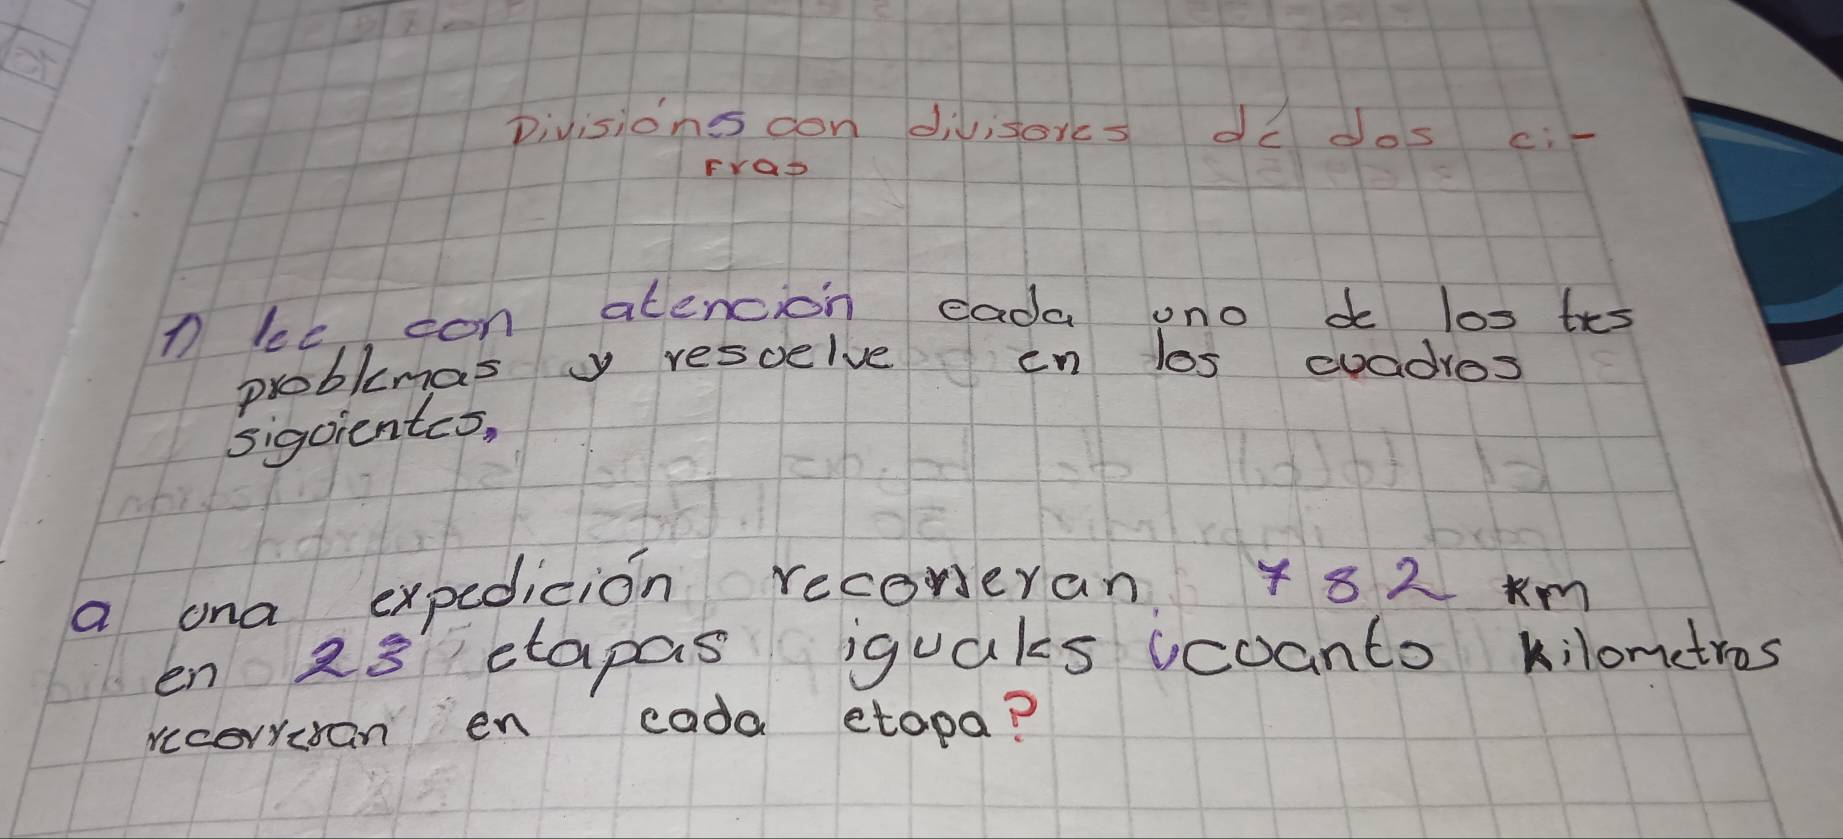 Divisións con divisores dé dos ci-
Fras
1) lee con atención cada uno de los tres
problemas y resuelve en los cuadros
siguientes,
a una expedición recorreran 782 km
en 23 etapas iguales ¿cuanto kilometros
recorreran en cada etapa?